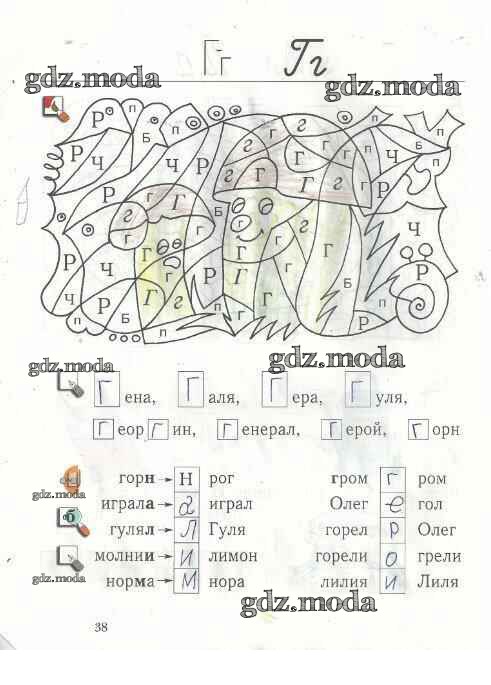 Гг Гг
gdz.moda gdz.moda
Р п п г г п
Р Ч Б Ч Р г Г г Ч
г г Г г Г Г г Р п
г г Б г г Г Ч
Р Ч г г Р Г г Г Б п Р
Ч Р Б Г г п Г г Г Р
gdz.moda
gdz.moda
Гена, Галя, Гера, Гуля,
Георгин, Генерал, Герой, Горн
горн → Н рог гром г ром
играла → а играл Олег е гол
гулял → Л Гуля горел Р Олег
молнии → И лимон горели о грели
норма → М нора лилия И Лиля
gdz.moda
gdz.moda
gdz.moda
38